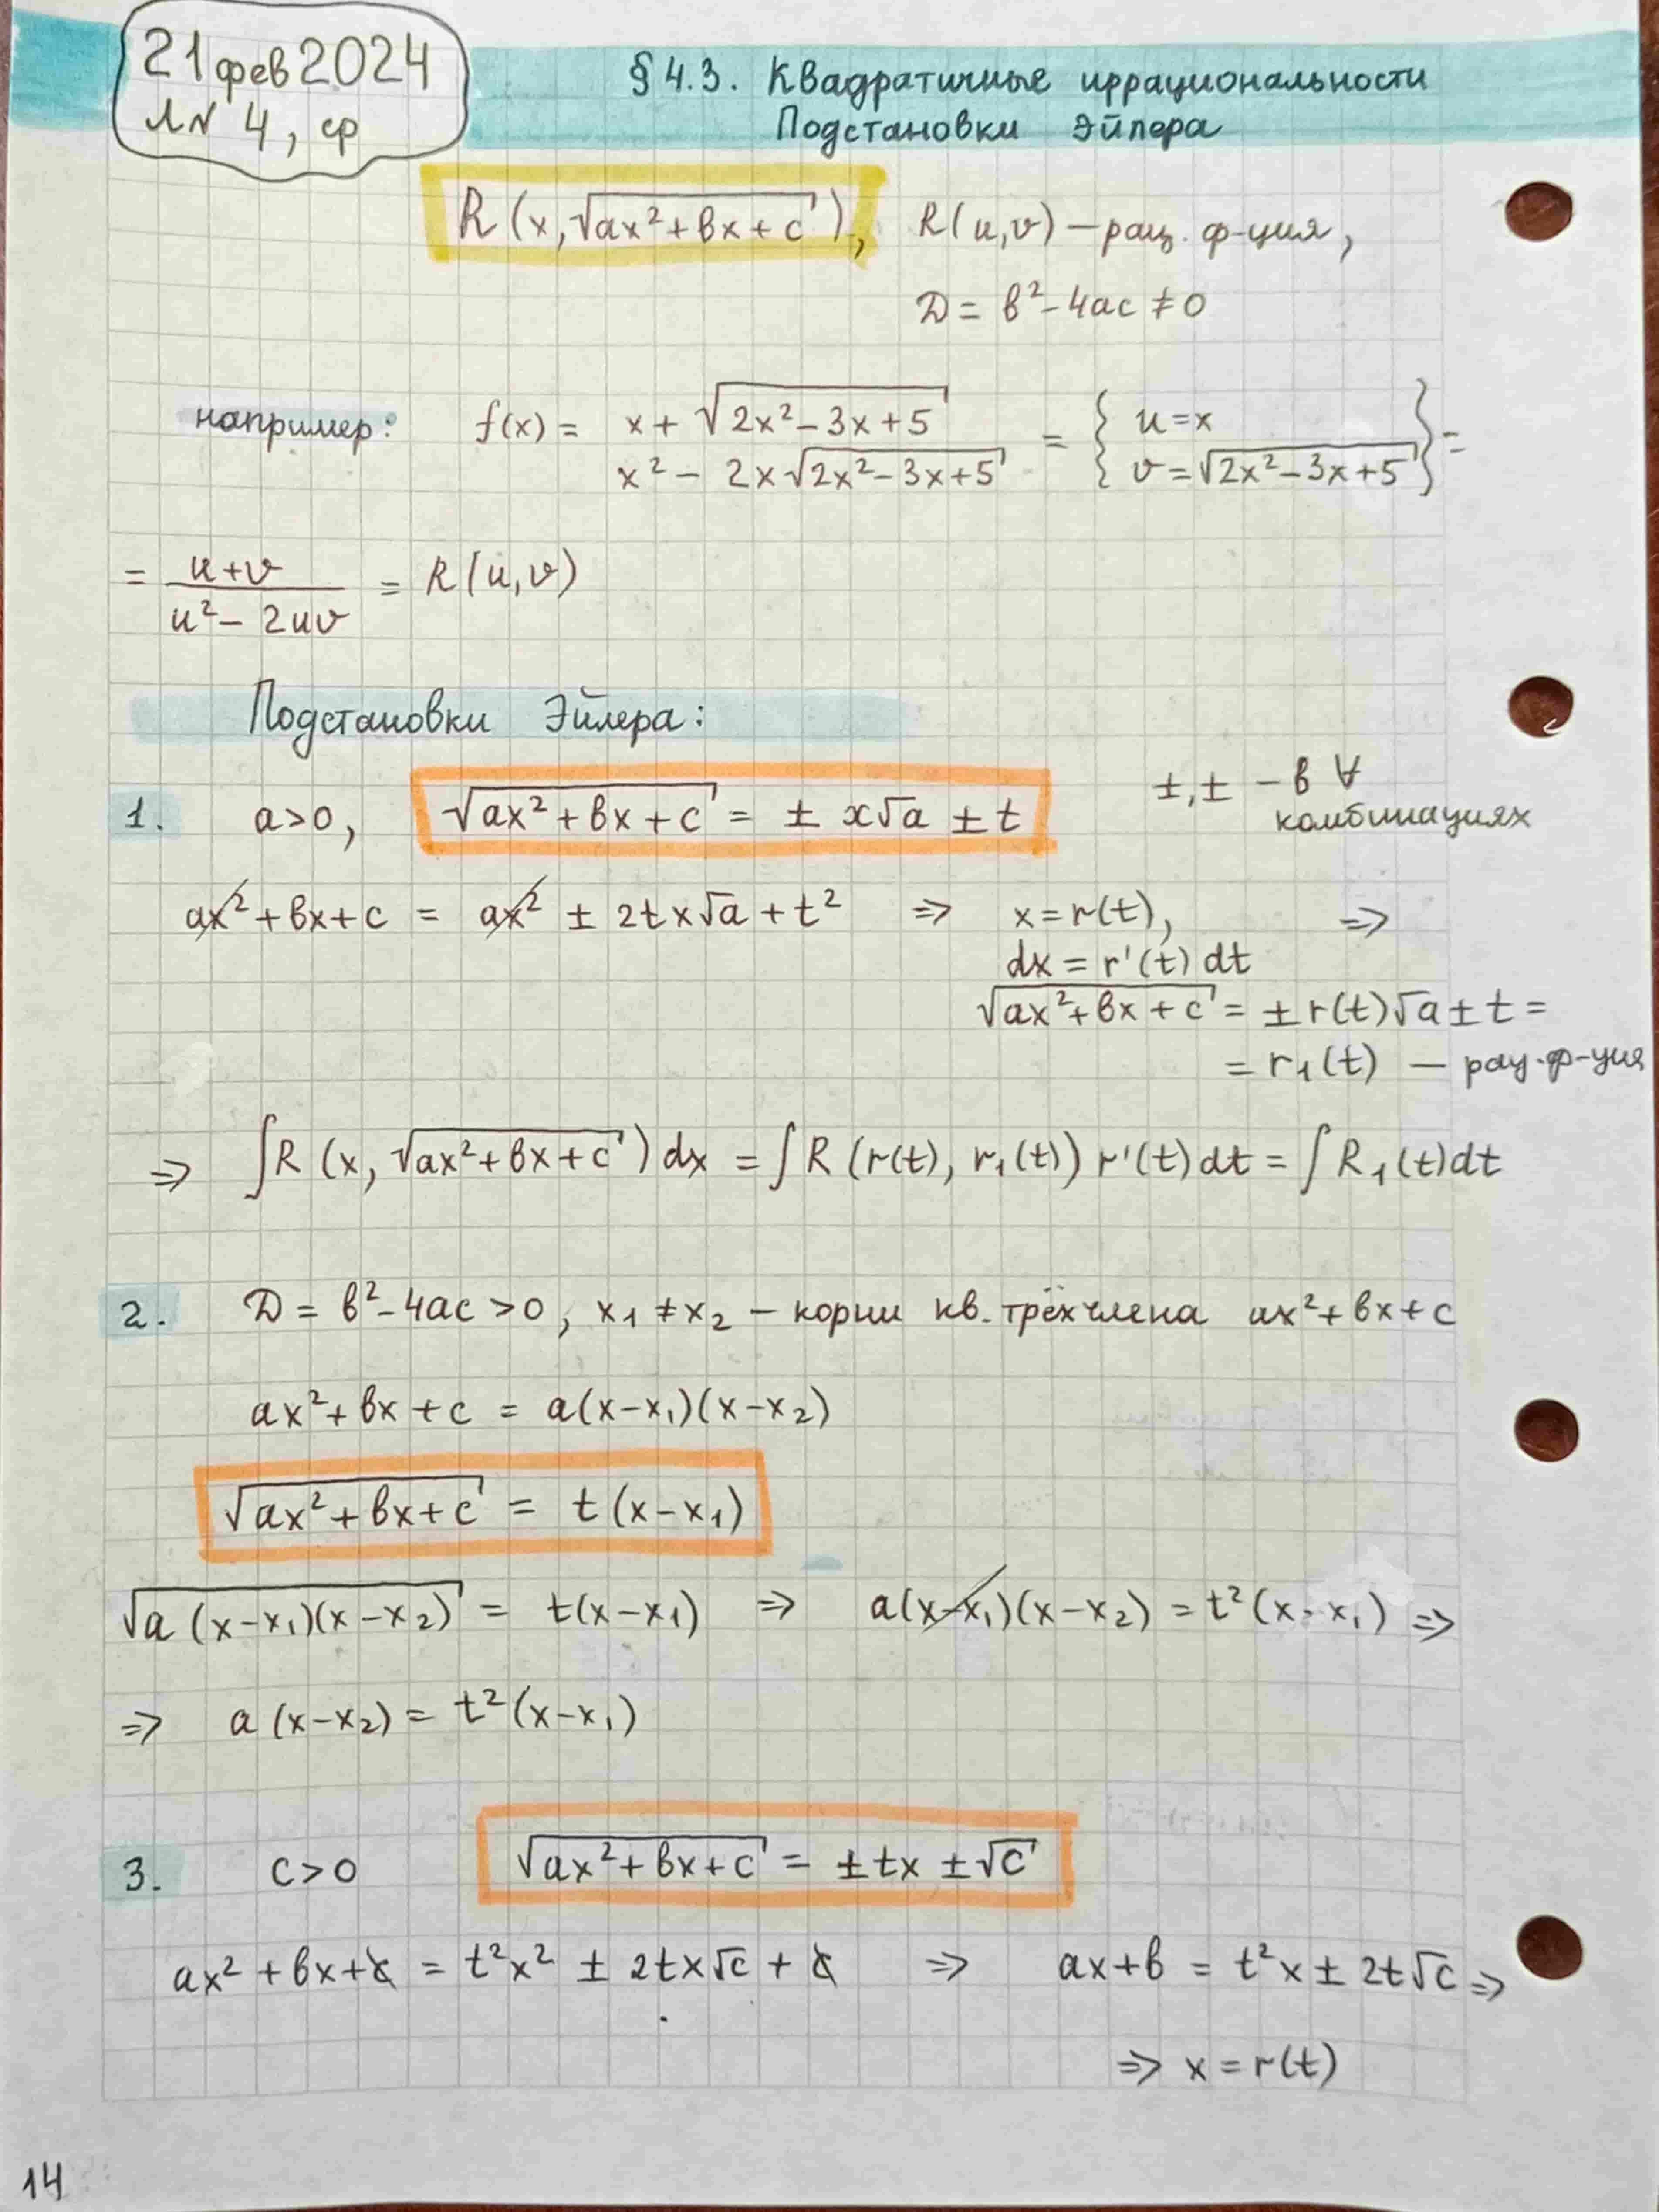 21 фев 2024
ЛN 4, ср
§ 4.3. Квадратичные иррациональности
Подстановки Эйлера
R(x, √(ax²+bx+c)), R(u,v) – рац. ф-ция,
D = b²-4ac ≠ 0
например: f(x) = (x + √(2x²-3x+5)) / (x² - 2x√(2x²-3x+5)) = { u=x
{ v=√(2x²-3x+5) } =
= (u+v)/(u²-2uv) = R(u,v)
Подстановки Эйлера:
1. a>0, √(ax²+bx+c) = ± x√a ± t ±,± - в ∀
комбинациях
ax²+bx+c = ax² ± 2tx√a + t² ⇒ x=r(t), ⇒
dx = r'(t) dt
√(ax²+bx+c) = ± r(t)√a ± t =
= r₁(t) – рац. ф-ция
⇒ ∫R(x, √(ax²+bx+c)) dx = ∫R(r(t), r₁(t)) r'(t) dt = ∫R₁(t)dt
2. D = b²-4ac > 0, x₁ ≠ x₂ – корни кв. трёхчлена ax²+bx+c
ax²+bx+c = a(x-x₁)(x-x₂)
√(ax²+bx+c) = t(x-x₁)
√(a(x-x₁)(x-x₂)) = t(x-x₁) ⇒ a(x-x₁)(x-x₂) = t²(x-x₁) ⇒
⇒ a(x-x₂) = t²(x-x₁)
3. c>0 √(ax²+bx+c) = ± tx ± √c
ax²+bx+c = t²x² ± 2tx√c + c ⇒ ax+b = t²x ± 2t√c ⇒
⇒ x = r(t)
14